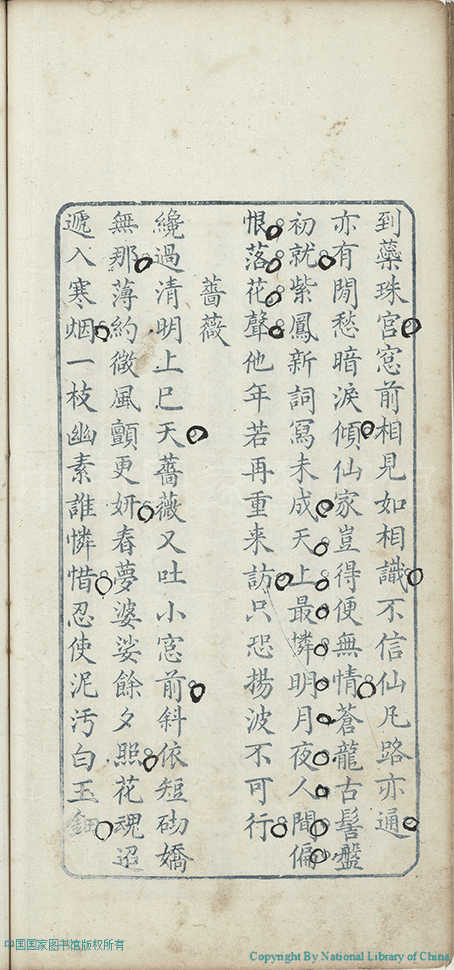 到蘂珠宮窓前相見如相識不信仙凡路亦通
亦有閒愁暗淚傾仙家豈得便無情蒼龍古髻盤
初就紫鳳新詞冩未成天上最憐明月夜人間偏
恨落花聲他年若再重来訪只恐揚波不可行
薔薇
纔過清明上巳天薔薇又吐小窓前斜依短砌嬌
無那薄約微風顫更妍春夢婆娑餘夕照花魂迢
遞入寒烟一枝幽素誰憐惜忍使泥汚白玉鈿
中国国家图书馆版权所有
Copyright By National Library of China